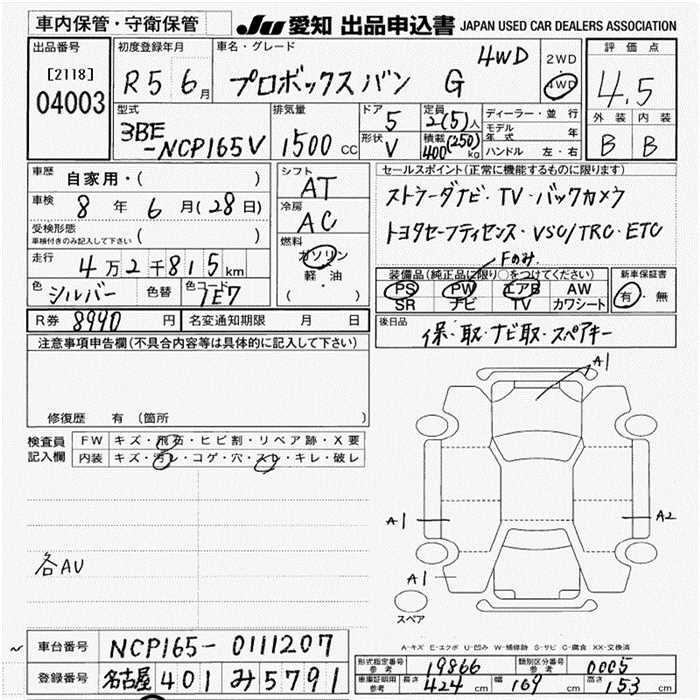 車内保管・守衛保管 JU 愛知 出品申込書 JAPAN USED CAR DEALERS ASSOCIATION
出品番号 [2118] 04003
初度登録年月 R5 6月
車名・グレード プロボックスバン G 4WD
2WD 4WD
評価点 4.5
外装 内装
B B
型式 3BE-NCP165V
排気量 1500 CC
ドア 5
形状 V
定員 2(5)人
積載 400(250)kg
ディーラー・並行
モデル年式 年
ハンドル 左・右
車歴 自家用・( )
車検 8年 6月(28日)
受検形態 車検付きのみ記入して下さい ( )
走行 4万2千815km
色 シルバー 色替 色コード 1E7
シフト AT
冷房 AC
燃料 ガソリン
軽・油
( ・ )
セールスポイント(正常に機能するものに限ります)
ストラーダナビ・TV・バックカメラ
トヨタセーフティセンス・VSC/TRC・ETC
Fのみ.
装備品(純正品に限り○をつけてください)
PS PW エアB AW
SR ナビ TV カワシート
新車保証書 有・無
R券 8940 円 名変通知期限 月 日
後日品 保・取・ナビ取・スペアキー
注意事項申告欄(不具合内容等は具体的に記入して下さい)
修復歴 有 (箇所
検査員記入欄
FW キズ・飛石・ヒビ割・リペア跡・X要
内装 キズ・汚レ・コゲ・穴・スレ・キレ・破レ
各AU
A1
A1
A2
A1
スペア
A-キズ E-エクボ U-凹み W-補修跡 S-サビ C-腐食 XX-交換済
車台番号 NCP165-0111207
登録番号 名古屋 401 み 5791
形式指定番号 参考 19866 類別区分番号 参考 0005
車庫証明用 参考 長さ 424 cm 幅 169 cm 高さ 153 cm